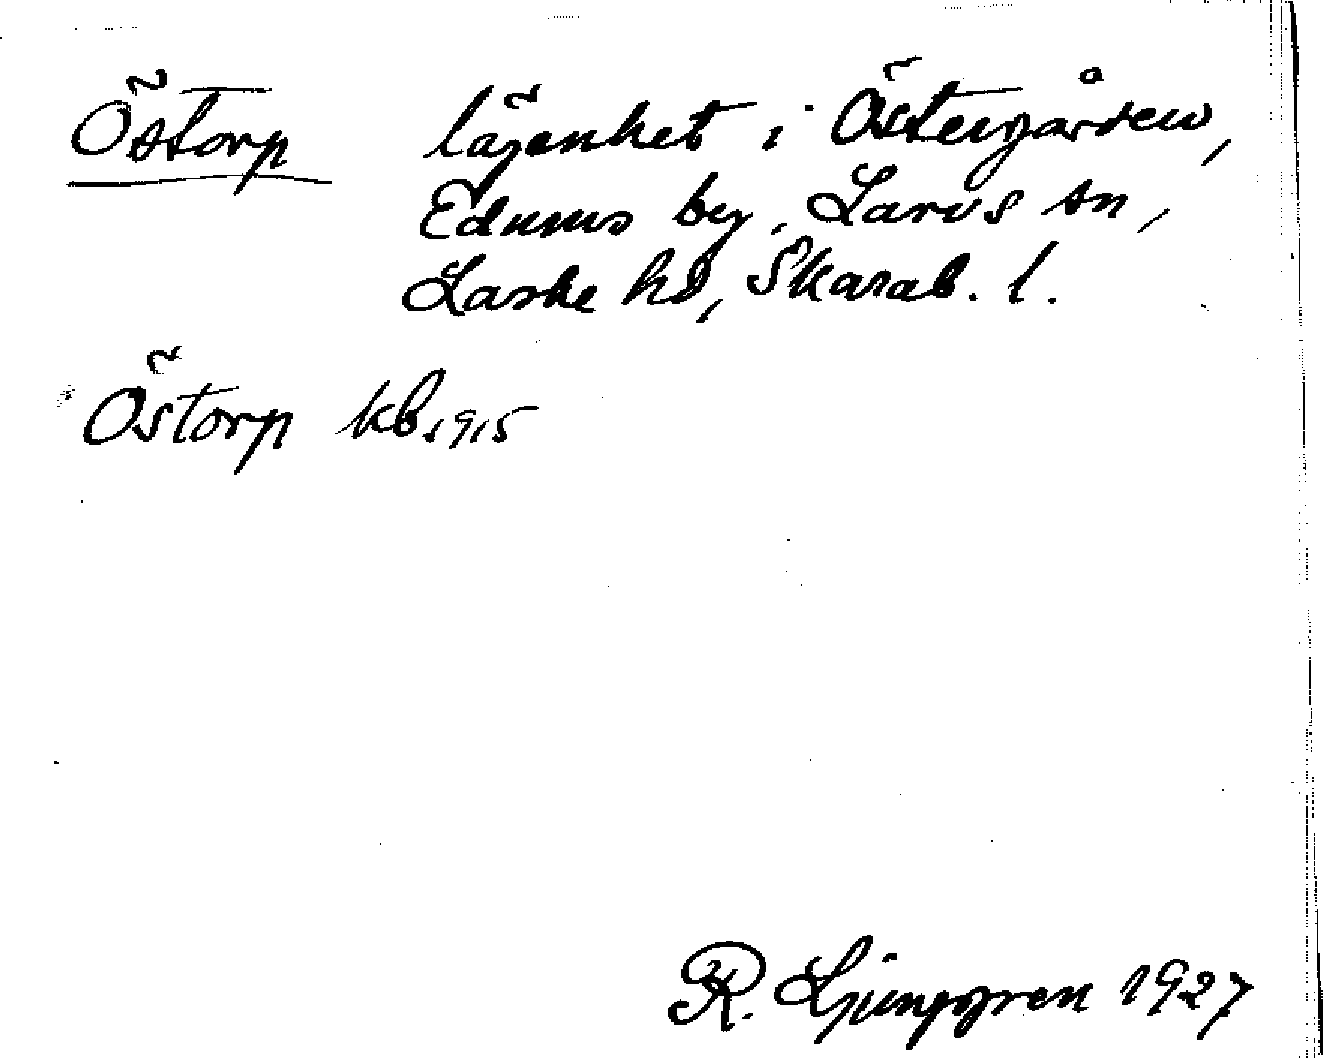 Östorp lägenhet i Östergården,
Edums by, Larvs sn,
Laske hd, Skarab. l.
Östorp kb. 1915
R. Ljunggren 1927